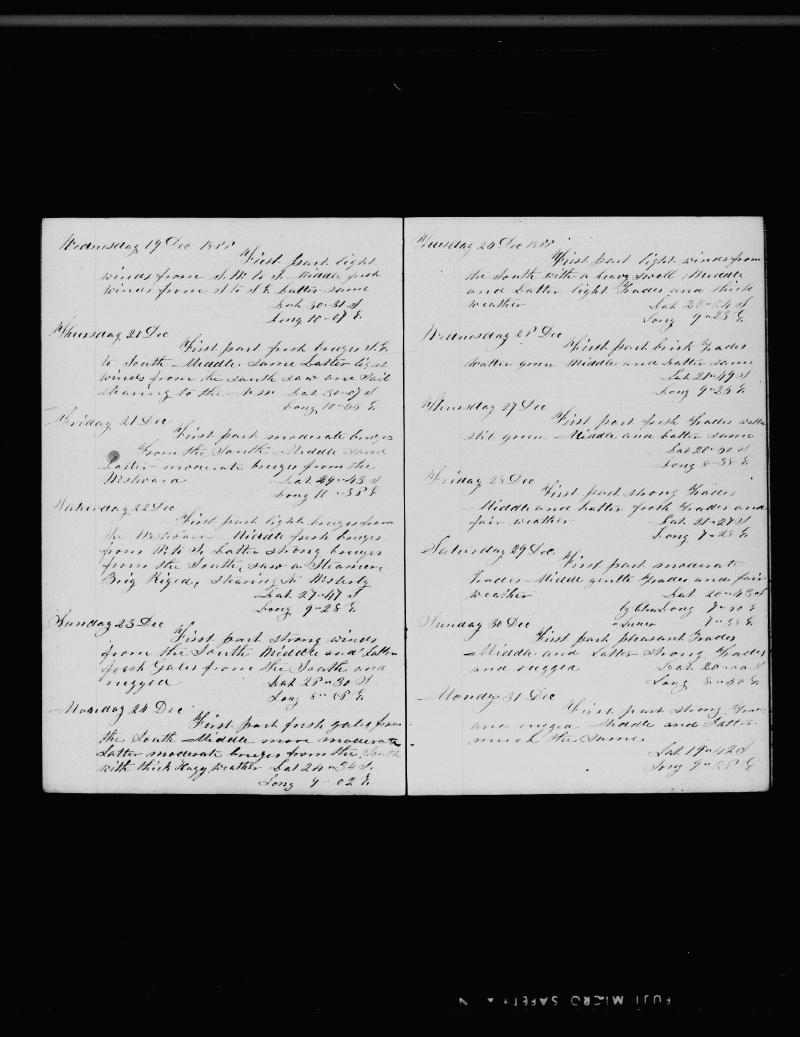 Wednesday 19 Dec 1888
First part light
winds from S.W. to S. Middle fresh
winds from S to S E. Latter same
Lat 30-31 S
Long 10-07 E.
Thursday 20 Dec
First part fresh breezes S.E.
to South Middle same Latter light
winds from the south saw one Sail
stearing to the N.W. Lat 30-07 S
Long, 10-44 E.
Friday 21 Dec
First part moderate breezes
from the South Middle same
Latter moderate breezes from the
Westward Lat 29-43 S
Long 10-38 E
Saturday 22 Dec
First part light breezes from
the Westward Middle fresh breezes
from W. to S. Latter strong breezes
from the South, saw a Steamer,
Brig Riged, stearing N Westerly
Lat 27-47 S
Long 9-28 E.
Sunday 23 Dec
First part strong winds
from the South Middle and Latter
fresh Gales from the South and
rugged Lat 25-30 S
Long 8-08 E.
Monday 24 Dec
First part fresh gales from
the South Middle more moderate
Latter moderate breezes from the South
with thick Hazy weather Lat 24-34 S.
Long 9-02 E.
Tuesday 25 Dec 1888
First part light winds from
the South with a heavy swell Middle
and Latter light Trades and thick
weather Lat 23-34 S
Long 9-23 E.
Wednesday 26 Dec
First part brisk Trades
watter green Middle and Latter same
Lat 21-49 S
Long 9-23 E.
Thursday 27 Dec
First part fresh Trades watter
stil green Middle and Latter same
Lat 20-30 S
Long 8-38 E.
Friday 28 Dec
First part strong Trades
Middle and Latter fresh Trades and
fair weather Lat 21-27 S
Long 7-28 E.
Saturday 29 Dec
First part moderate
Trades Middle gentle Trades and fair
weather Lat 20-43 S
by Chro Long 7-30 E
" Luner 7-38 E.
Sunday 30 Dec
First part pleasant Trades
Middle and Latter strong Trades
and rugged Lat 20-00 S
Long 8-30 E.
Monday 31 Dec
First part strong Trades
and rugged Middle and Latter
much the same
Lat 19-42 S
Long 9-28 E
FUJI MICRO SAFETY